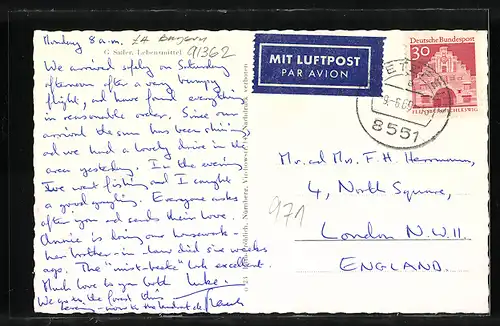 Monday 8 a.m. LK Bayern
G. Saffer, Lebensmittel 91362
We arrived safely on Saturday
afternoon after a very bumpy
flight, and have found everything
in reasonable order. Since our
arrival the sun has been shining
and we had a lovely drive in the
area yesterday. In the evening
we went fishing and I caught
a good grayling. Everyone asks
after you and sends their love.
Annie is doing our housework –
her brother-in-law died six weeks
ago. The "mist-beete" look excellent.
Much love to you both
We go to the forest this
evening – now to the
MIT LUFTPOST
PAR AVION
Deutsche Bundespost
30
9.-6.69
8551
Mr. and Mrs. F. H. Herrmann,
4, North Square,
London N.W.11.
ENGLAND.
971